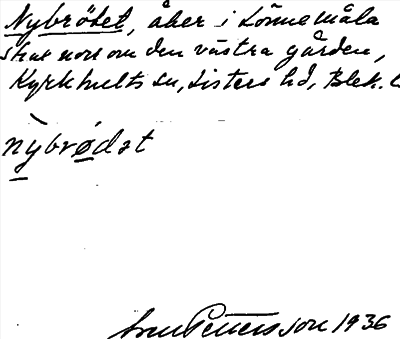 Nybrödet, åker i Lönnemåla
strax norr om den västra gården,
Kyrkhults sn, Listers hd, Blek. l
nỳbrødət
Sven Pettersson 1936